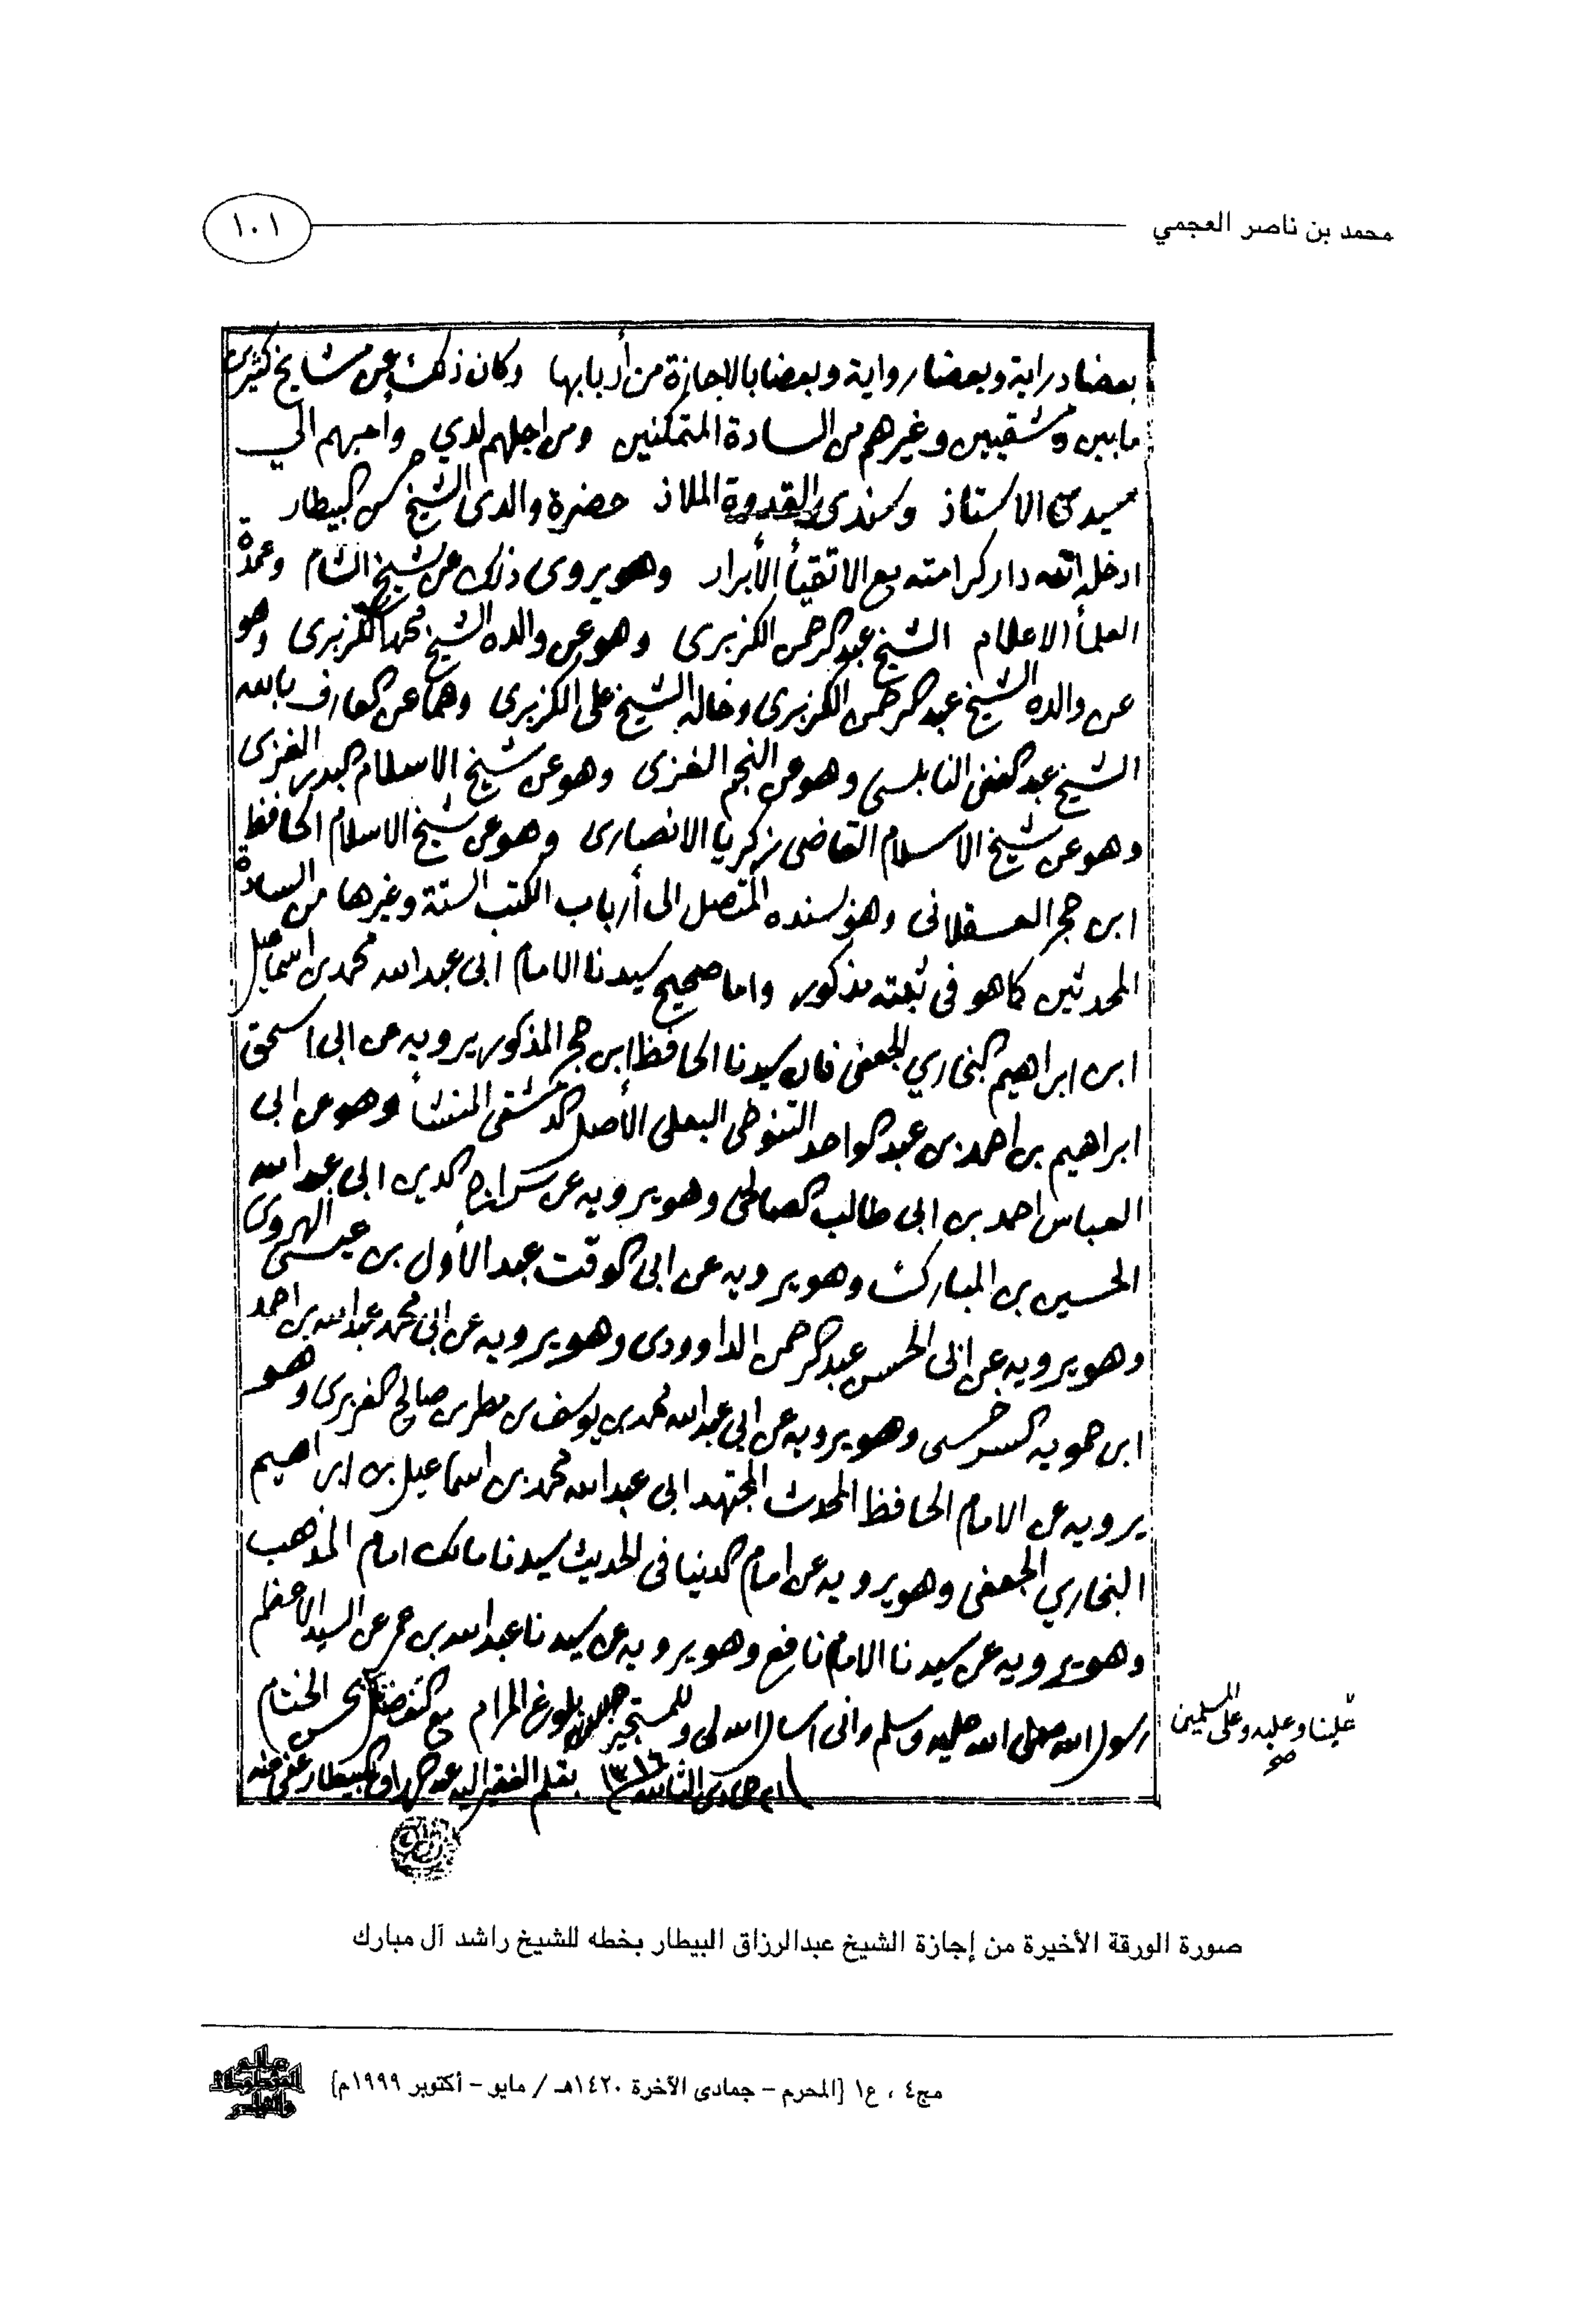 محمد بن ناصر العجمي
١٠١
بعضا دراية وبعضا رواية وبعضا بالاجازة من أربابها وكان ذلك عن مشايخ كثيرين
ما بين دمشقيين وغيرهم من السادة المتمكنين ومن اجلهم لدي وأحبهم الي
سيدي الاستاذ وسندي القدوة الملاذ حضرة والدى الشيخ حسن البيطار
ادخله الله دار كرامته مع الاتقيأ الأبرار وهو يروى ذلك عن شيخ الشام وعمدة
العلمأ الاعلام الشيخ عبد الرحمن الكزبرى وهو عن والده الشيخ محمد الكزبرى وهو
عن والده الشيخ عبد الرحمن الكزبرى وخاله الشيخ على الكزبرى وهما عن العارف بالله
الشيخ عبد الغنى النابلسى وهو عن النجم الغزى وهو عن شيخ الاسلام البدر الغزى
وهو عن شيخ الاسلام القاضى زكريا الانصارى وهو عن شيخ الاسلام الحافظ
ابن حجر العسقلانى وهو بسنده المتصل الى أرباب الكتب الستة وغيرها من السادة
المحدثين كما هو فى ثبته مذكور واما صحيح سيدنا الامام ابى عبد الله محمد بن اسماعيل
ابن ابراهيم البخاري الجعفى فان سيدنا الحافظ ابن حجر المذكور يرويه عن ابى اسحق
ابراهيم بن احمد بن عبد الواحد التنوخى البعلى الأصل الدمشقى المنشأ وهو عن ابى
العباس احمد بن ابى طالب الصالحى وهو يرويه عن سراج الدين ابى عبد الله
الحسين بن المبارك وهو يرويه عن ابى الوقت عبد الأول بن عيسى الهروى
وهو يرويه عن ابى الحسن عبد الرحمن الداوودى وهو يرويه عن ابى محمد عبد الله بن احمد
ابن حمويه السرخسى وهو يرويه عن ابى عبد الله محمد بن يوسف بن مطر بن صالح الفربرى وهو
يرويه عن الامام الحافظ المحدث المجتهد ابى عبد الله محمد بن اسماعيل بن ابراهيم
البخاري الجعفى وهو يرويه عن امام الدنيا فى الحديث سيدنا مالك امام المذهب
وهو يرويه عن سيدنا الامام نافع وهو يرويه عن سيدنا عبد الله بن عمر عن السيد الاعظم
رسول الله صلى الله عليه وسلم وانى اسال الله لى وللمستجيز بلوغ المرام مع التفضل بحسن الختام
علينا وعليه وعلى المسلمين
صح
جمادى الثانيه ١٣١٦ بقلم الفقير اليه عبد الرزاق البيطار عفى عنه
صورة الورقة الأخيرة من إجازة الشيخ عبدالرزاق البيطار بخطه للشيخ راشد آل مبارك
مج٤ ، ع١ [المحرم - جمادى الآخرة ١٤٢٠هـ / مايو - أكتوبر ١٩٩٩م]
عالم
المخطوطات
والنوادر